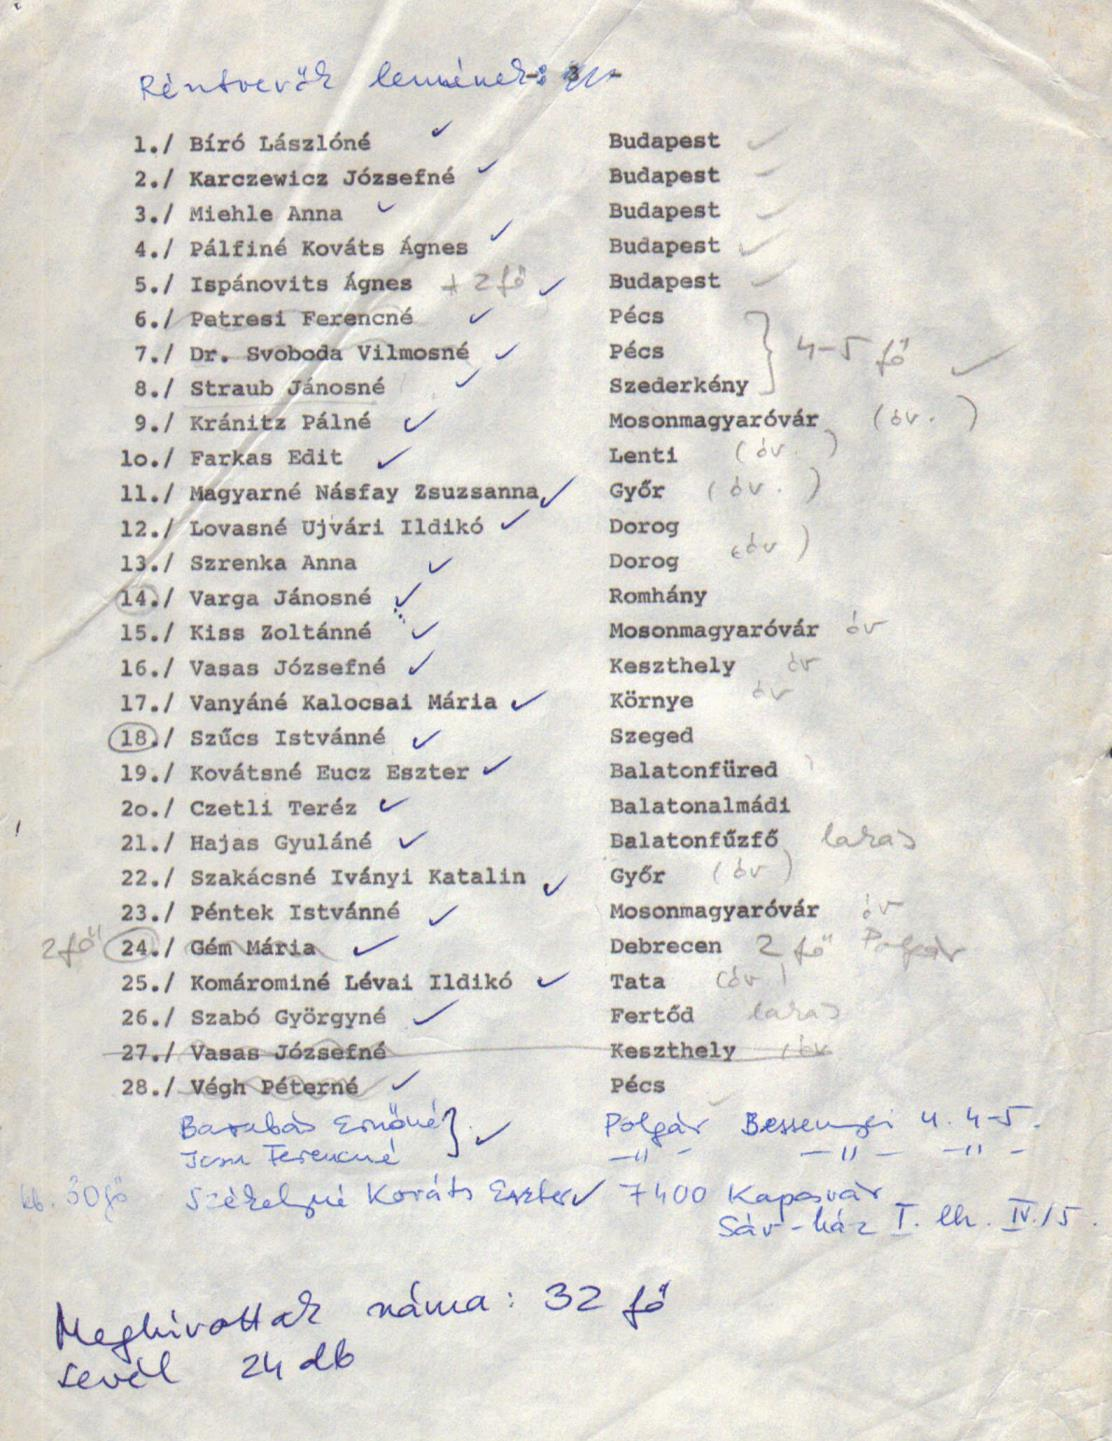 Résztvevők lennének:
1./ Bíró Lászlóné ✓ Budapest ✓
2./ Karczewicz Józsefné ✓ Budapest ✓
3./ Miehle Anna ✓ Budapest ✓
4./ Pálfiné Kováts Ágnes ✓ Budapest ✓
5./ Ispánovits Ágnes + 2 fő ✓ Budapest ✓
6./ Petresi Ferencné ✓ Pécs
7./ Dr. Svoboda Vilmosné ✓ Pécs } 4-5 fő ✓
8./ Straub Jánosné ✓ Szederkény
9./ Kránitz Pálné ✓ Mosonmagyaróvár (óv.)
1o./ Farkas Edit ✓ Lenti (óv.)
11./ Magyarné Násfay Zsuzsanna ✓ Győr (óv.)
12./ Lovasné Ujvári Ildikó ✓ Dorog
13./ Szrenka Anna ✓ Dorog (óv)
14./ Varga Jánosné ✓ Romhány
15./ Kiss Zoltánné ✓ Mosonmagyaróvár óv
16./ Vasas Józsefné ✓ Keszthely óv
17./ Vanyáné Kalocsai Mária ✓ Környe óv
18./ Szűcs Istvánné ✓ Szeged
19./ Kovátsné Eucz Eszter ✓ Balatonfüred
2o./ Czetli Teréz ✓ Balatonalmádi
21./ Hajas Gyuláné ✓ Balatonfűzfő lakás
22./ Szakácsné Iványi Katalin ✓ Győr (óv)
23./ Péntek Istvánné ✓ Mosonmagyaróvár óv
2 fő 24./ Gém Mária ✓ Debrecen 2 fő Polgár
25./ Komárominé Lévai Ildikó ✓ Tata (óv)
26./ Szabó Györgyné ✓ Fertőd lakás
27./ Vasas Józsefné Keszthely óv
28./ Végh Péterné ✓ Pécs ✓
Barabás Ernőné } ✓ Polgár Bessenyei u. 4-5.
Ferencné -"- -"- -"-
kb. 30 fő Székelyné Kováts Eszter ✓ 7400 Kaposvár
Sáv-ház I. lh. IV./5.
Meghívottak száma: 32 fő
Levél 24 db